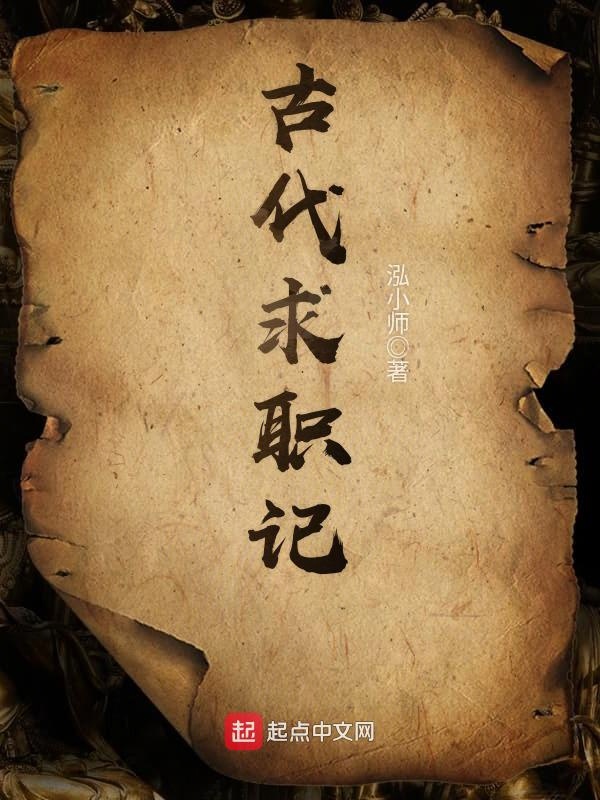 古代求职记
泓小师◎著
起 起点中文网